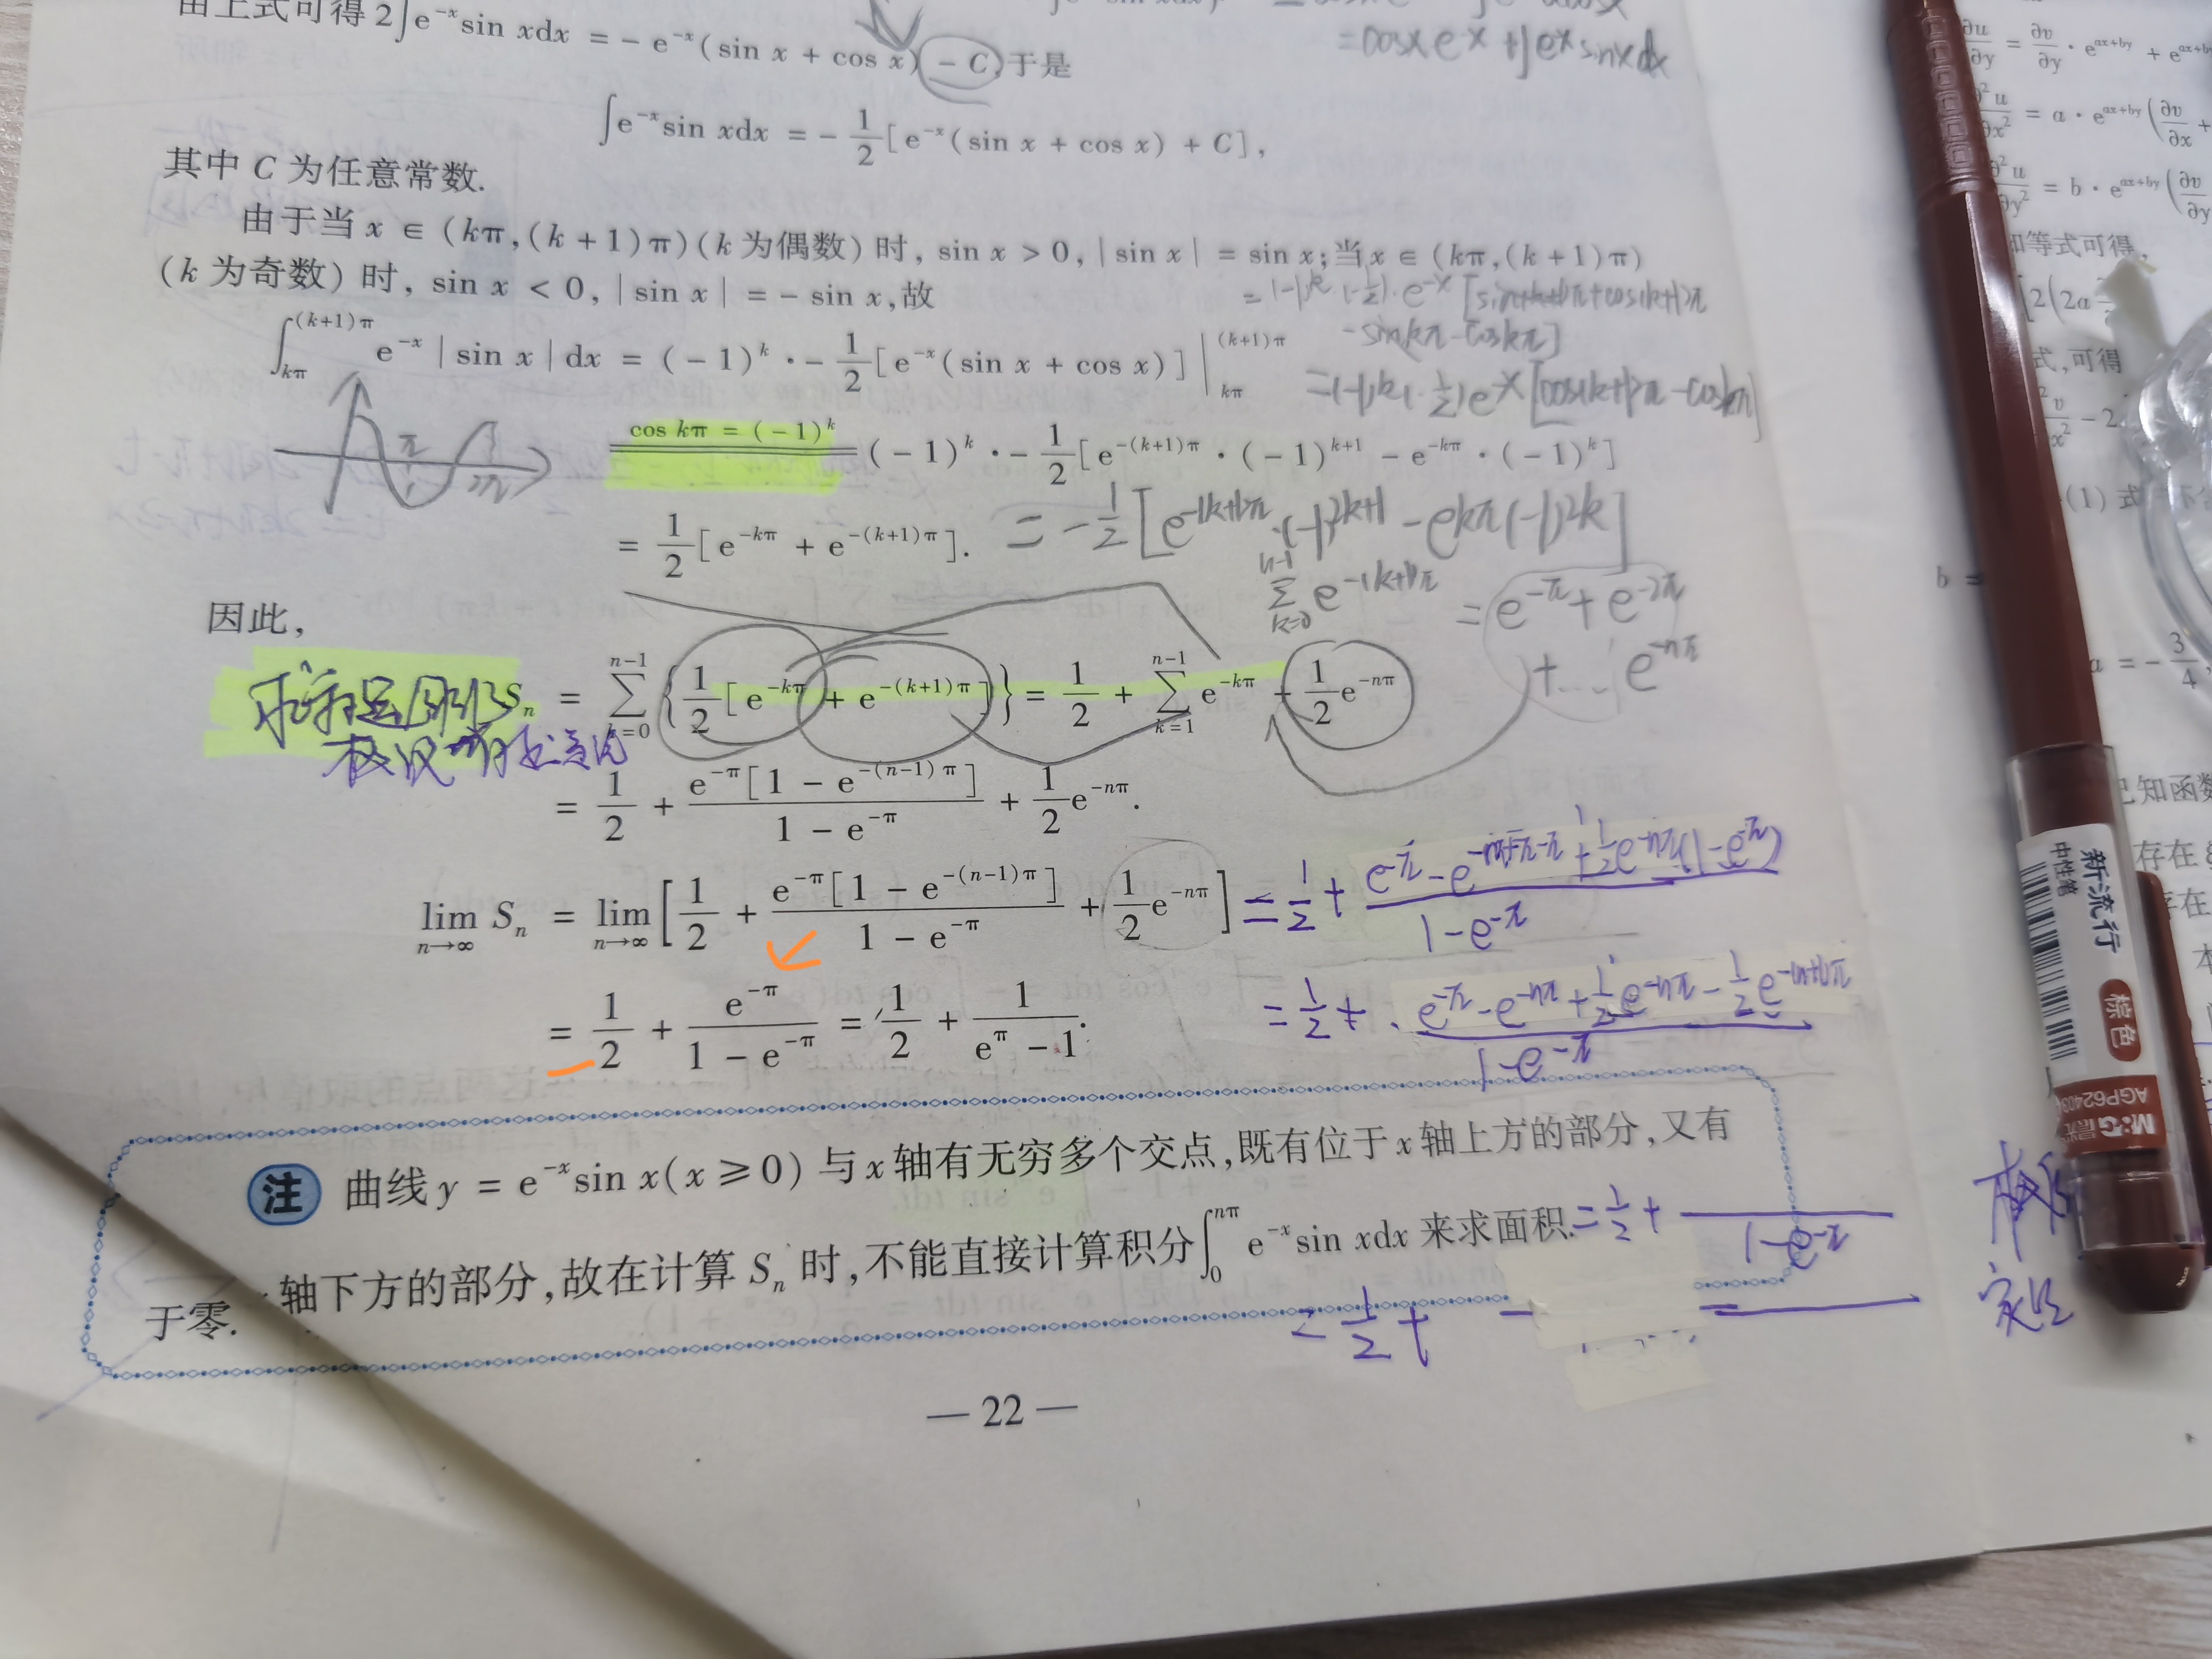 由上式可得 2∫e^{-x}sin xdx = - e^{-x}(sin x + cos x) - C, 于是
= cosx e^x + ∫e^x sinx dx
∫e^{-x}sin xdx = - \frac{1}{2}[e^{-x}(sin x + cos x) + C],
其中 C 为任意常数.
由于当 x ∈ (kπ,(k + 1)π)(k 为偶数) 时, sin x > 0, | sin x | = sin x; 当 x ∈ (kπ,(k + 1)π)
(k 为奇数) 时, sin x < 0, | sin x | = - sin x, 故
∫_{kπ}^{(k+1)π} e^{-x} | sin x | dx = (- 1)^k · - \frac{1}{2}[e^{-x}(sin x + cos x)] |_{kπ}^{(k+1)π}
= (-1)^k (-\frac{1}{2}) · e^{-x} [sin(k+1)π + cos(k+1)π
- sinkπ - coskπ]
= (-1)^k (-\frac{1}{2}) e^{-x} [cos(k+1)π - coskπ]
π
2π
cos kπ = (- 1)^k (- 1)^k · - \frac{1}{2}[e^{-(k+1)π} · (- 1)^{k+1} - e^{-kπ} · (- 1)^k]
= \frac{1}{2}[e^{-kπ} + e^{-(k+1)π}].
= -\frac{1}{2}[e^{-(k+1)π} · (-1)^{2k+1} - e^{kπ}(-1)^{2k}]
∑_{k=0}^{n-1} e^{-(k+1)π} = e^{-π} + e^{-2π}
+ ... e^{-nπ}
因此,
S_n = ∑_{k=0}^{n-1} {\frac{1}{2}[e^{-kπ} + e^{-(k+1)π}]} = \frac{1}{2} + ∑_{k=1}^{n-1} e^{-kπ} + \frac{1}{2}e^{-nπ}
= \frac{1}{2} + \frac{e^{-π}[1 - e^{-(n-1)π}]}{1 - e^{-π}} + \frac{1}{2}e^{-nπ}.
\lim_{n→∞} S_n = \lim_{n→∞}[\frac{1}{2} + \frac{e^{-π}[1 - e^{-(n-1)π}]}{1 - e^{-π}} + \frac{1}{2}e^{-nπ}]
= \frac{1}{2} + \frac{e^{-π} - e^{-nπ+π-π} + \frac{1}{2}e^{-nπ}(1-e^{-π})}{1-e^{-π}}
= \frac{1}{2} + \frac{e^{-π}}{1 - e^{-π}} = \frac{1}{2} + \frac{1}{e^π - 1}.
= \frac{1}{2} + \frac{e^{-π} - e^{-nπ} + \frac{1}{2}e^{-nπ} - \frac{1}{2}e^{-(n+1)π}}{1-e^{-π}}
注 曲线 y = e^{-x}sin x(x ≥ 0) 与 x 轴有无穷多个交点, 既有位于 x 轴上方的部分, 又有
轴下方的部分, 故在计算 S_n 时, 不能直接计算积分∫_0^{nπ} e^{-x}sin xdx 来求面积.
= \frac{1}{2} + \frac{}{1-e^{-π}}
= \frac{1}{2} +
于零.
— 22 —
\frac{∂u}{∂y} = \frac{∂v}{∂y} · e^{ax+by} + e^{ax+by}
\frac{∂^2u}{∂x^2} = a · e^{ax+by}(\frac{∂v}{∂x} +
\frac{∂^2u}{∂y^2} = b · e^{ax+by}(\frac{∂v}{∂y}
和等式可得,
[2(2a
式, 可得
- 2
(1) 式
b =
a = - \frac{3}{4},
已知函数
存在 ξ
存在
新流行
中性笔
棕色
M&G
AGP62403